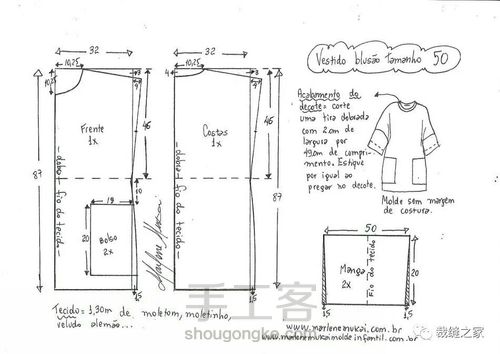 Vestido blusão tamanho 50
32
10,25
10,25
3
4
Frente
1x
46
87
dobra - fio do tecido
10
19
Bolso
2x
20
15
Marlene Mukai
32
10,25
4
3
4
Costas
1x
46
87
dobra - fio do tecido
15
Acabamento do
decote = corte
uma tira dobrada
com 2cm de
largura por
49cm de compri-
mento. Estique
por igual ao
pregar no decote.
Molde sem margem
de costura.
50
Manga
2x
Fio do tecido
20
15
15
Tecido = 1,30m de moletom, moletinho,
veludo alemão...
www.marlenemukai.com.br
www.marlenemukaimoldeinfantil.com.br
手工客
shougongke.com
裁缝之家